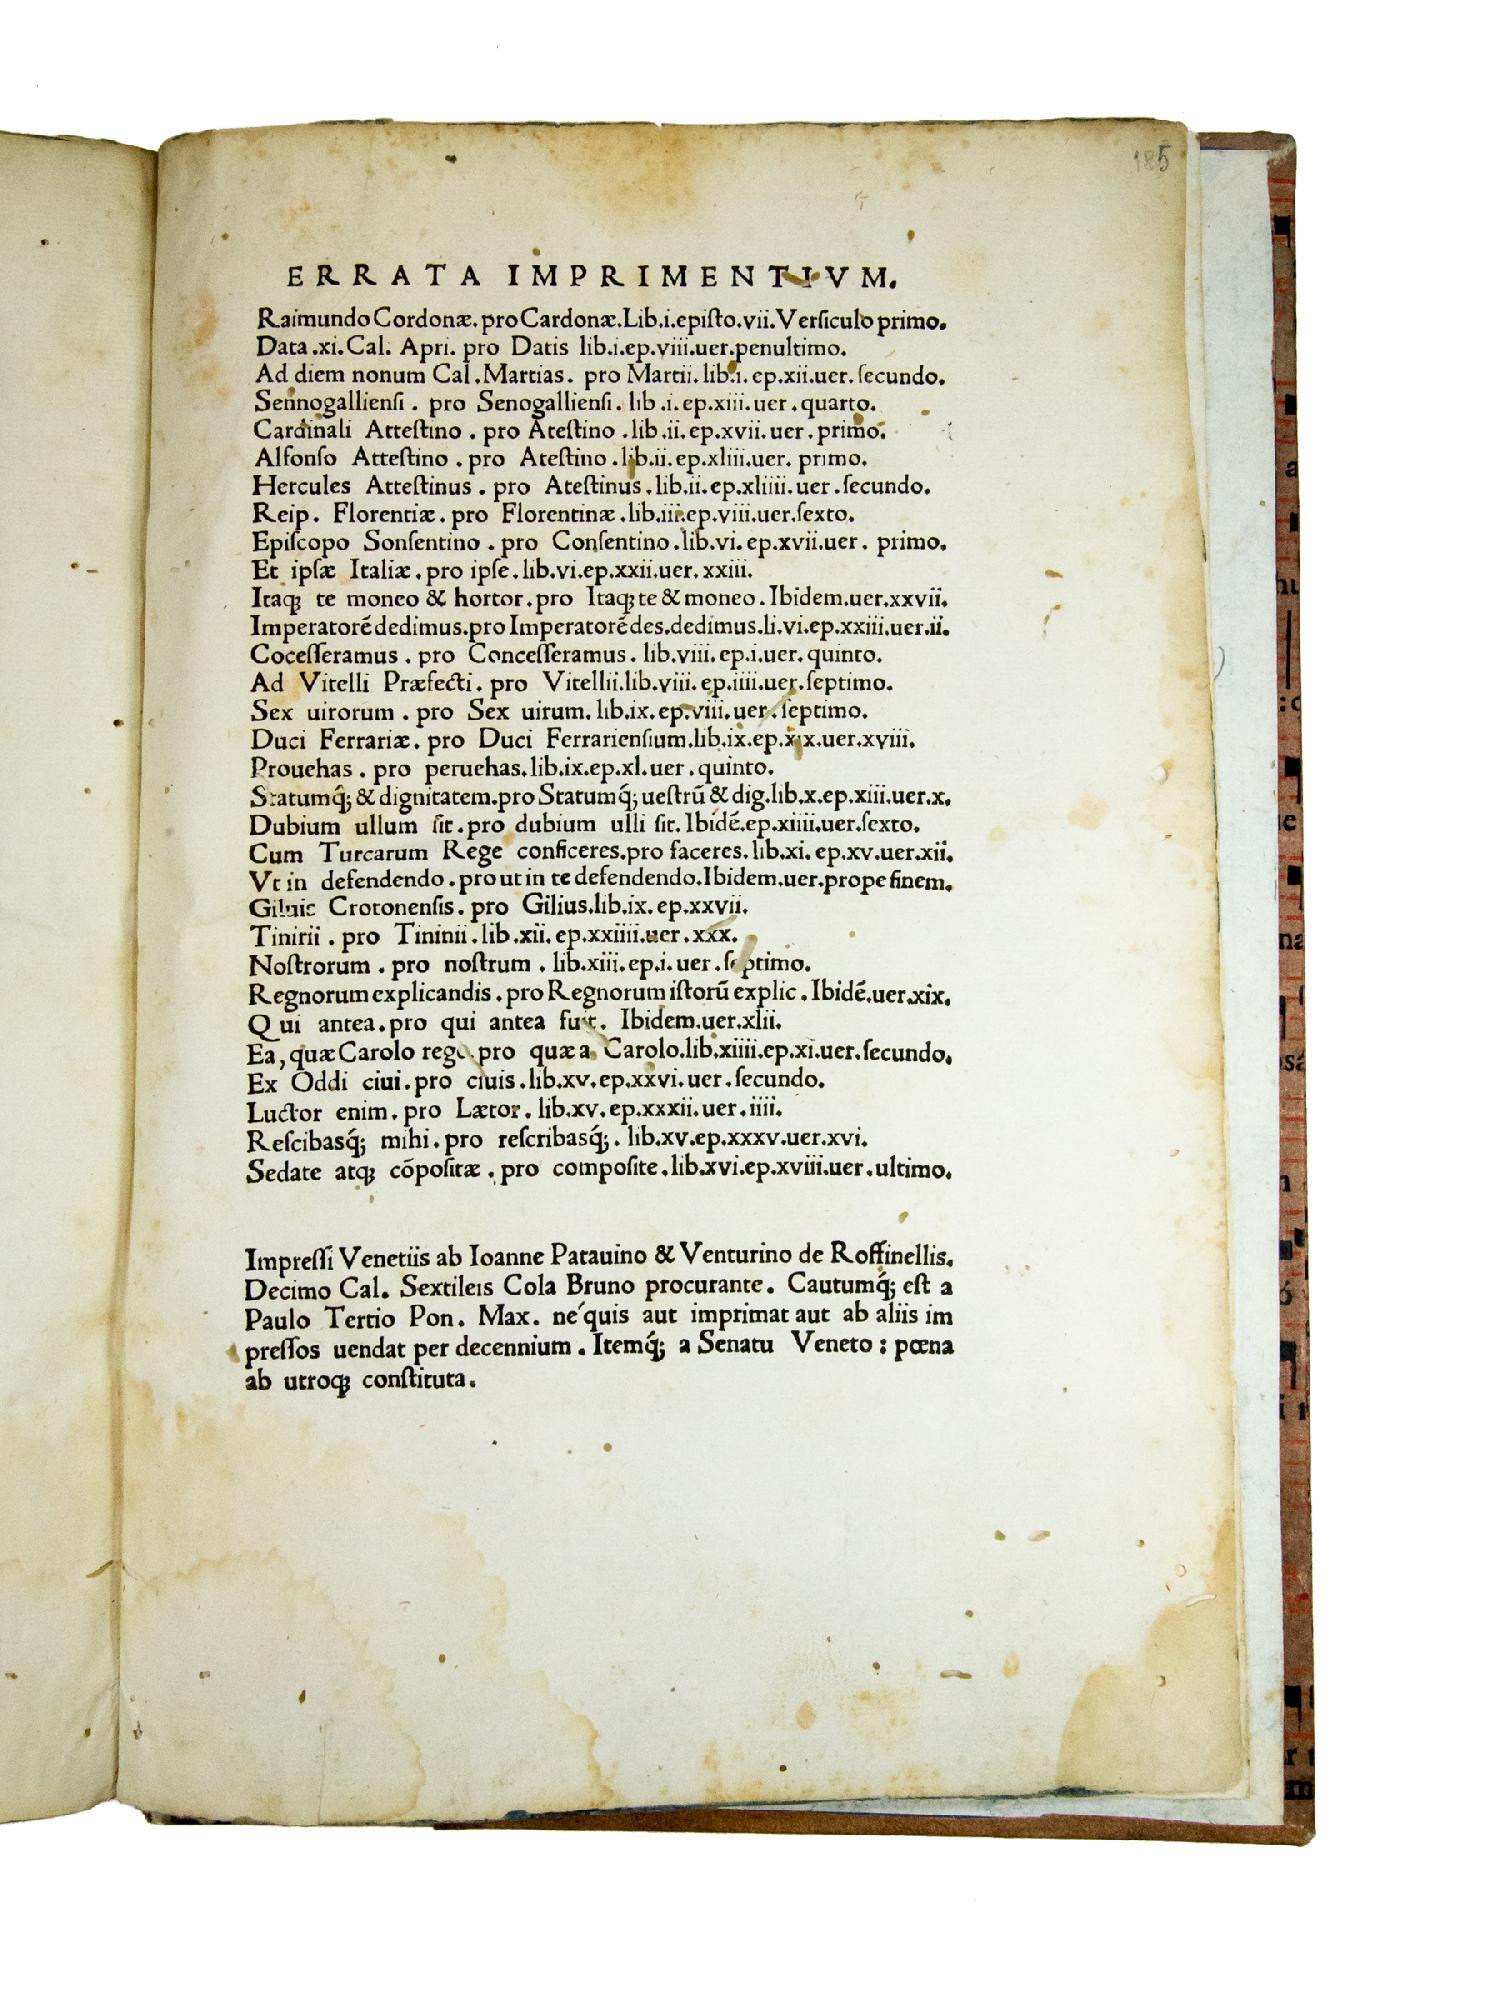 185
ERRATA IMPRIMENTIVM.
Raimundo Cordonæ. pro Cardonæ. Lib.i.episto.vii. Versiculo primo.
Data .xi. Cal. Apri. pro Datis lib.i.ep.viii.uer.penultimo.
Ad diem nonum Cal. Martias. pro Martii. lib.i. ep.xii.uer. secundo.
Sennogalliensi. pro Senogalliensi. lib.i.ep.xiii.uer. quarto.
Cardinali Attestino. pro Atestino. lib.ii.ep.xvii.uer. primo.
Alfonso Attestino. pro Atestino. lib.ii.ep.xliii.uer. primo.
Hercules Attestinus. pro Atestinus. lib.ii.ep.xliiii.uer. secundo.
Reip. Florentiæ. pro Florentinæ. lib.iii.ep.viii.uer.sexto.
Episcopo Sonsentino. pro Consentino. lib.vi.ep.xvii.uer. primo.
Et ipsæ Italiæ. pro ipse. lib.vi.ep.xxii.uer. xxiii.
Itaq; te moneo & hortor. pro Itaq; te & moneo. Ibidem.uer.xxvii.
Imperatorē dedimus. pro Imperatorē des. dedimus. li.vi.ep.xxiii.uer.ii.
Cocesseramus. pro Concesseramus. lib.viii.ep.i.uer. quinto.
Ad Vitelli Præfecti. pro Vitellii. lib.viii.ep.iiii.uer.septimo.
Sex uirorum. pro Sex uirum. lib.ix.ep.viii.uer. septimo.
Duci Ferrariæ. pro Duci Ferrariensium. lib.ix.ep.xix.uer.xviii.
Prouehas. pro peruehas. lib.ix.ep.xl.uer. quinto.
Statumq́; & dignitatem. pro Statumq́; uestrū & dig. lib.x.ep.xiii.uer.x.
Dubium ullum sit. pro dubium ulli sit. Ibidē.ep.xiiii.uer.sexto.
Cum Turcarum Rege conficeres. pro faceres. lib.xi.ep.xv.uer.xii.
Vt in defendendo. pro ut in te defendendo. Ibidem.uer.prope finem.
Crotonensis. pro Gilius. lib.ix.ep.xxvii.
Tinirii. pro Tininii. lib.xii.ep.xxiiii.uer.xxx.
Nostrorum. pro nostrum. lib.xiii.ep.i.uer. septimo.
Regnorum explicandis. pro Regnorum istorū explic. Ibidē.uer.xix.
Qui antea. pro qui antea fuit. Ibidem.uer.xlii.
Ea, quæ Carolo rege. pro quæ a Carolo. lib.xiiii.ep.xi.uer.secundo.
Ex Oddi ciui. pro ciuis. lib.xv.ep.xxvi.uer.secundo.
Luctor enim. pro Lætor. lib.xv.ep.xxxii.uer.iiii.
Rescibasq́; mihi. pro rescribasq́;. lib.xv.ep.xxxv.uer.xvi.
Sedate atq; cōpositæ. pro composite. lib.xvi.ep.xviii.uer.ultimo.
Impressi Venetiis ab Ioanne Patauino & Venturino de Roffinellis.
Decimo Cal. Sextileis Cola Bruno procurante. Cautumq́; est a
Paulo Tertio Pon. Max. ne quis aut imprimat aut ab aliis im
pressos uendat per decennium. Itemq́; a Senatu Veneto: pœna
ab utroq; constituta.